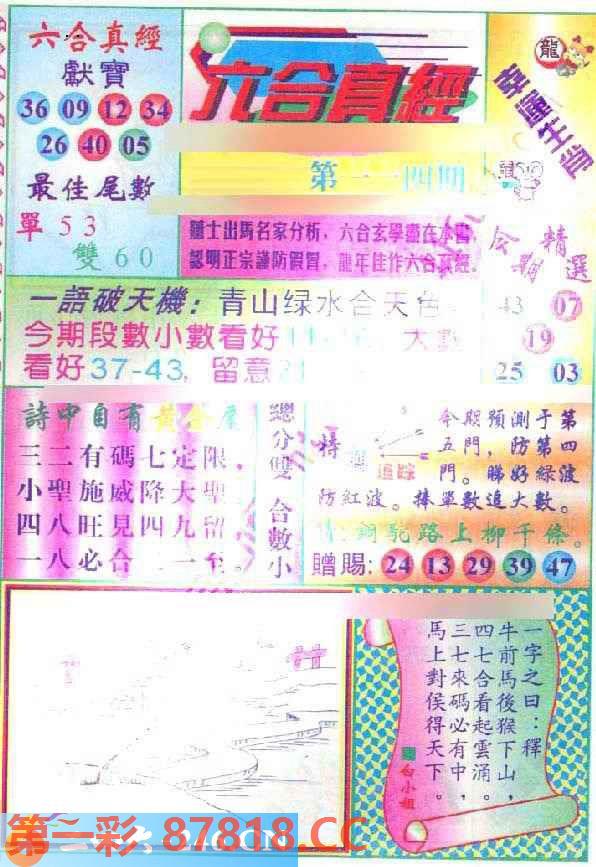 六合真經
獻寶
36 09 12 34
26 40 05
最佳尾數
單 5 3
雙 6 0
六合真經
第一一四期
龍
幸運生肖
鼠
隨士出馬名家分析，六合玄學盡在本書，
認明正宗謹防假冒，龍年佳作六合真經。
公期精選
43 07
19
25 03
一語破天機：青山绿水合天色
今期段數小數看好 大數
看好37-43，留意
詩中自有黃金屋
三二有碼七定限。
小聖施威降大聖
四八旺見四九留
一八必合二一至。
總分雙 合數小
特
追踪
今期預測于第
五門，防第四
門。睇好綠波
防紅波。捧單數追大數。
銅駝路上柳千條。
贈賜：24 13 29 39 47
一字之曰：釋
牛前馬後猴下山，
四七合看起雲涌。
三七來碼必有中，
馬上對侯得天下。
白小姐
第一彩 87818.CC
246.CN